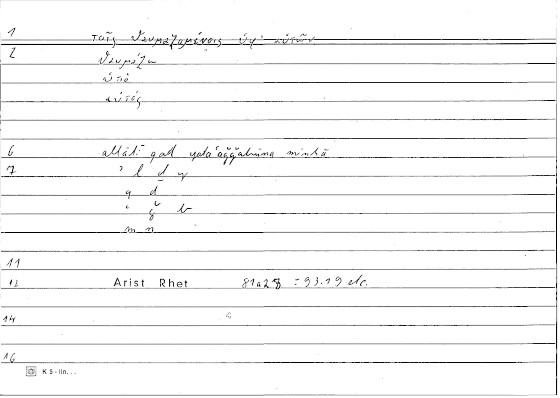 1 ταῖς θαυμαζομένοις ὑφ' αὐτῶν
2 θαυμάζω
ὑπό
αὐτός
6 allāḏī qad yata'aǧǧabūna minhā
7 ' l ḏ y
q d
' ǧ b
m n
11
13 Arist Rhet 81a28 = 93.19 etc.
14
16
K 5 - lin...